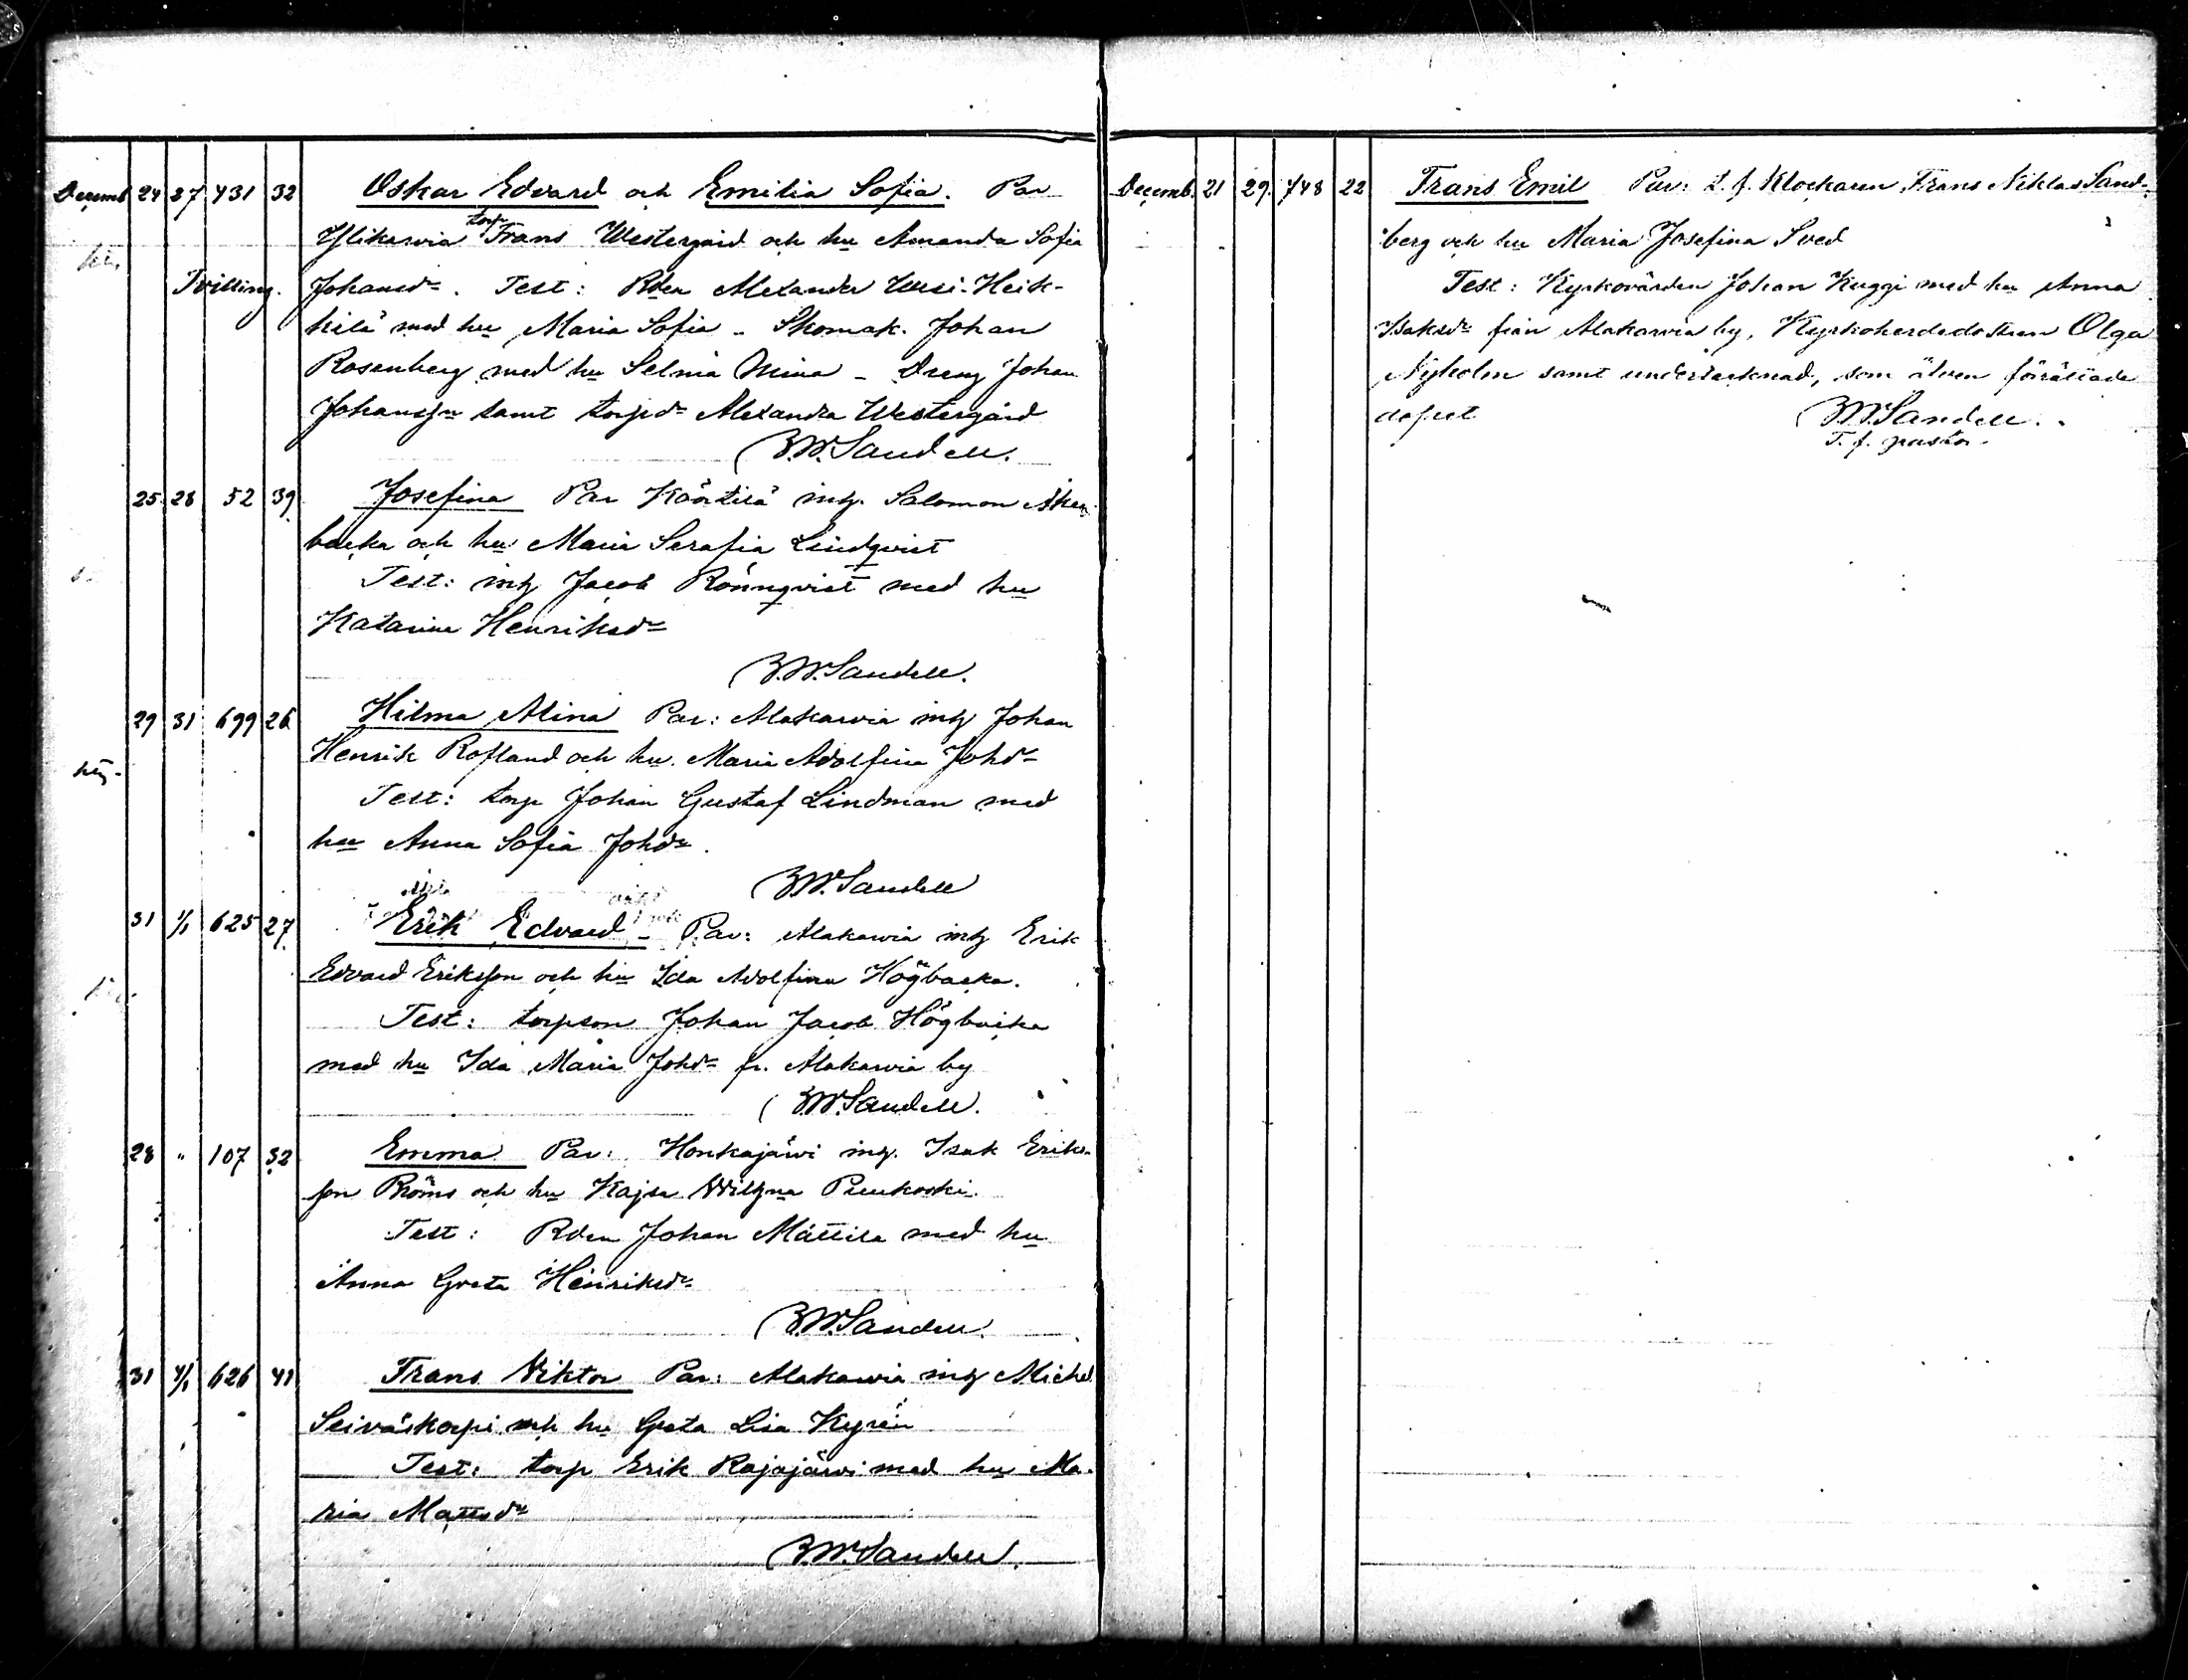 Decemb. 24 27 431 32 Oskar Edvard och Emilia Sofia. Par
Yflikarvia torp Frans Westergård och hu Amanda Sofia
Tvilling. Johansdr. Test: Rden Alexander Uusi-Heik-
kilä med hu Maria Sofia - Skomak. Johan
Rosenberg med hu Selma Mina - Dreng Johan
Johansson samt torpdr Alexandra Westergård
F.W. Sandell.
25 28 52 39 Josefina Par Käörtilä inh. Salomon Åker-
backa och hu Maria Serafia Lindqvist
Test: inh Jacob Rönnqvist med hu
Katarina Henriksdr
F.W. Sandell.
29 31 699 26 Hilma Alina Par: Alakarvia inh Johan
Henrik Rosslund och hu. Maria Adolfina Johdr
Test: torp Johan Gustaf Lindman med
hu Anna Sofia Johdr.
F.W. Sandell
31 1/1 625 27 Erik Edvard - Par: Alakarvia inh Erik
Edvard Eriksson och hu Ida Adolfina Högbacka.
Test: torpson Johan Jacob Högbacka
med hu Ida Maria Johdr fr. Alakarvia by
F.W. Sandell.
28 " 107 32 Emma Par: Honkajärvi inh. Isak Eriks-
son Broms och hu Kajsa Wilhna Puukoski.
Test: Rden Johan Mattila med hu
Anna Greta Henriksdr
F.W. Sandell.
31 4/1 626 41 Frans Viktor Par: Alakarvia inh Michel
Seiväskorpi och hu Greta Lisa Kyrén
Test: torp Erik Rajajärvi med hu Ma-
ria Mattsdr
F.W. Sandell.
Decemb. 21 29 748 22 Frans Emil Par: t.f. Klockaren Frans Niklas Sand-
berg och hu Maria Josefina Sved
Test: Kyrkovärden Johan Kuggi med hu Anna
Isaksdr från Alakarvia by, Kyrkoherdedottren Olga
Nyholm samt undertecknad, som även förrättade
dopet F.W. Sandell.
T. f. pastor.